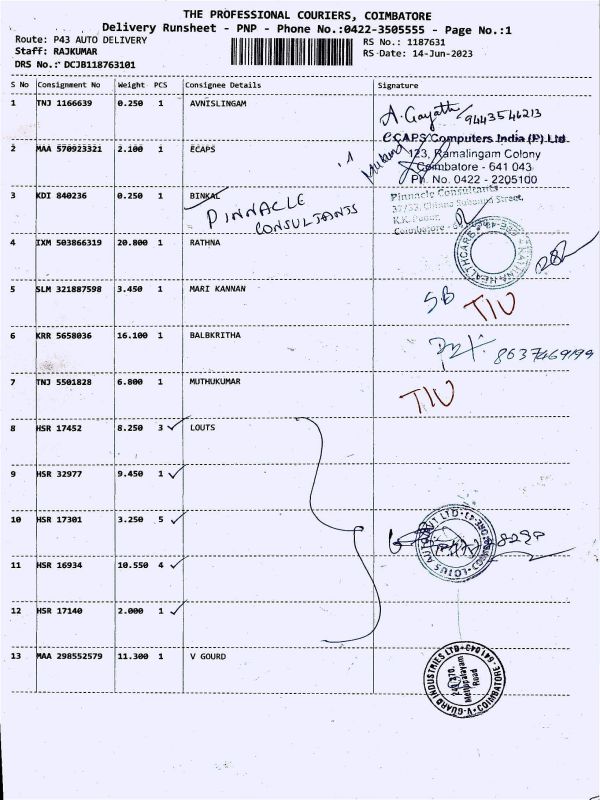 THE PROFESSIONAL COURIERS, COIMBATORE
Delivery Runsheet - PNP - Phone No.:0422-3505555 - Page No.:1
Route: P43 AUTO DELIVERY
RS No.: 1187631
Staff: RAJKUMAR
RS-Date: 14-Jun-2023
DRS No.: DCJB118763101
S No Consignment No Weight PCS Consignee Details Signature
1 TNJ 1166639 0.250 1 AVNISLINGAM
A. Gayathri 9443546213
2 MAA 570923321 2.100 1 ECAPS
eCAPS Computers India (P) Ltd
123, Ramalingam Colony
Coimbatore - 641 043
Ph. No. 0422 - 2205100
3 KDI 840236 0.250 1 BINKAL
PINNACLE CONSULTANTS
Pinnacle Consultants
Street,
Coimbatore
4 IXM 503866319 20.800 1 RATHNA
HEALTHCARE
5 SLM 321887598 3.450 1 MARI KANNAN
SB TIU
6 KRR 5658036 16.100 1 BALBKRITHA
8637469199
7 TNJ 5501828 6.800 1 MUTHUKUMAR
TIU
8 HSR 17452 8.250 3 ✓ LOUTS
9 HSR 32977 9.450 1 ✓
10 HSR 17301 3.250 5 ✓
11 HSR 16934 10.550 4 ✓
12 HSR 17140 2.000 1 ✓
13 MAA 298552579 11.300 1 V GOURD
V-GUARD INDUSTRIES LTD COIMBATORE-641043
Mettupalayam
Road